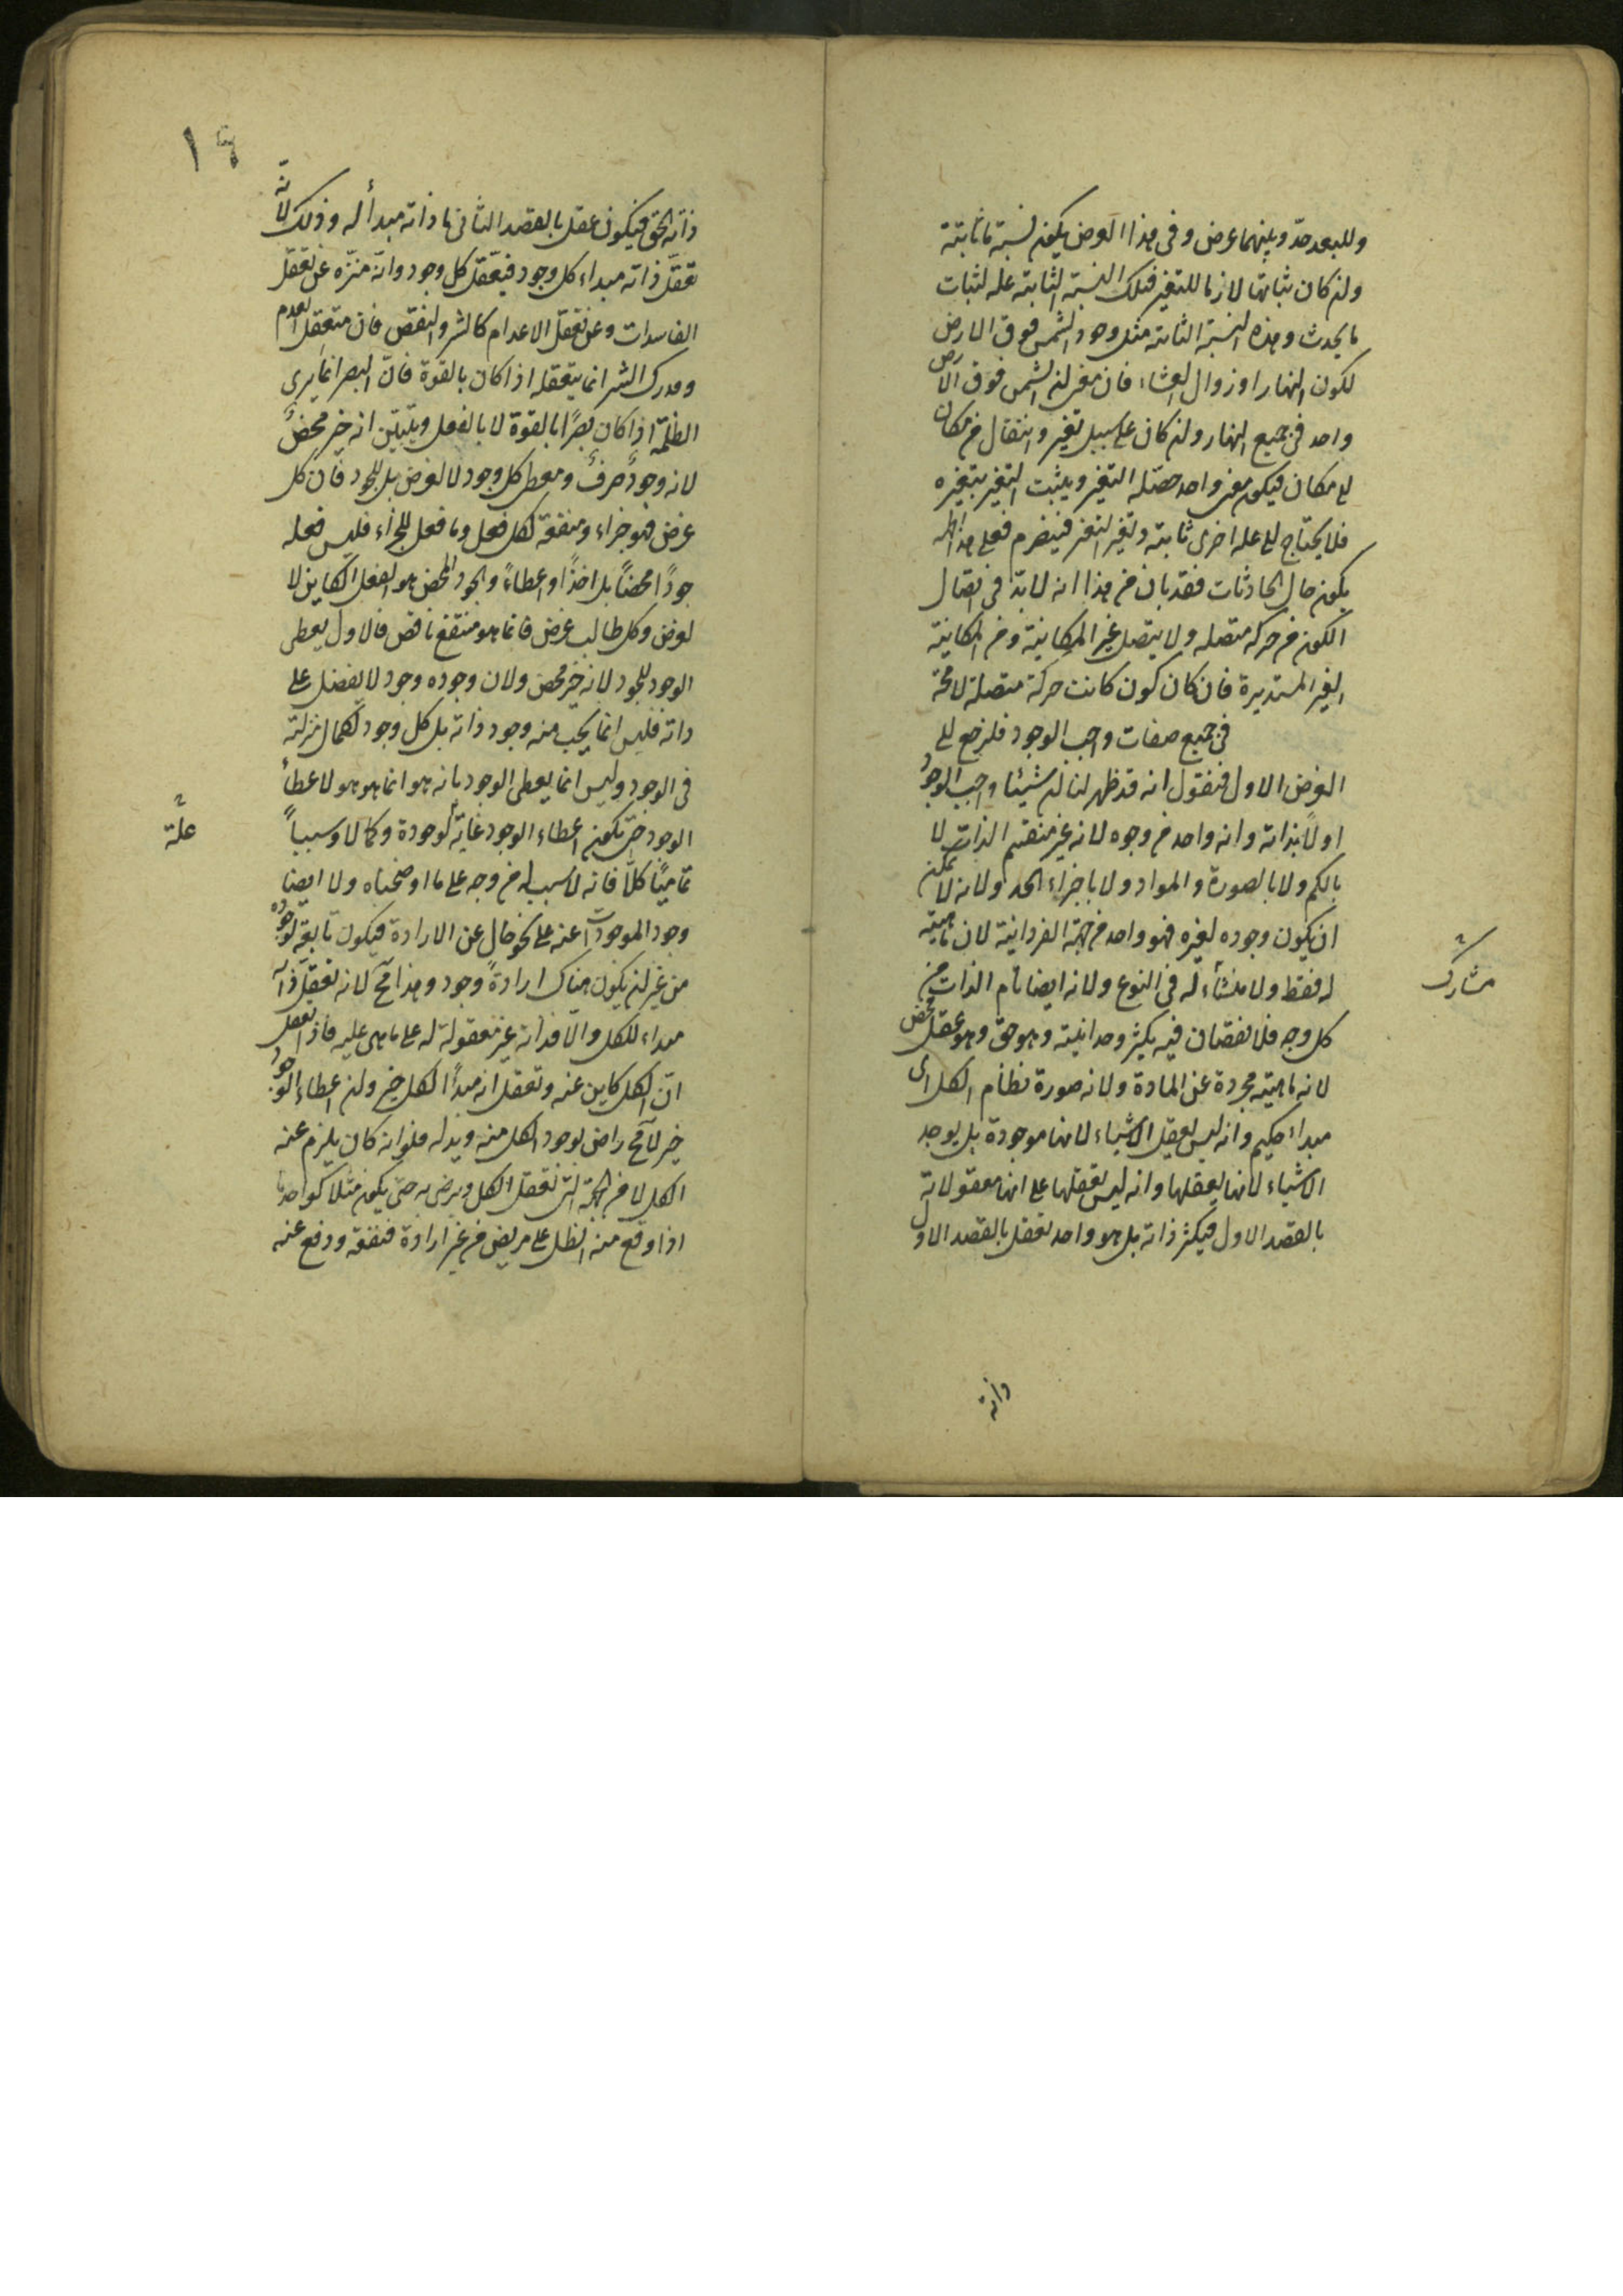 وللبعد حدّ وبينهما عرض وفى هذا العرض يكون نسبة ما ثابتة
ولن كان ثباتها لازما للتغير فتلك النسبة الثابتة علة لثبات
ما يحدث وهذه النسبة الثابتة مثل وجود الشمس فوق الارض
لكون النهار او زوال العشاء فان معنى لن الشمس فوق الارض
واحد فى جميع النهار ولن كان على سبيل تغير وانتقال من مكان
لى مكان فيكون معنى واحد حصّله التغير ويثبت التغير بتغيره
فلا يحتاج لى علة اخرى ثابتة وتغير التغير فينصرم فعلى هذا
يكون حال الحادثات فقد بان من هذا انه لا بدّ فى اتصال
الكون من حركة متصلة ولا يتصل غير المكانية ومن المكانية
الغير المستديرة فان كان كون كانت حركة متصلة لا محة
فى جميع صفات واجب الوجود فلنرجع لى
الغرض الاول فنقول انه قد ظهر لنا لن شيئا واجب الوجود
اولا بذاته وانه واحد من وجوه لانه غير منقسم الذات لا
بالكم ولا بالصورة والمواد ولا باجزاء الحد ولانه لا يمكن
ان يكون وجوده لغيره فهو واحد من جهة الفردانية لان ماهيته
له فقط ولا منشاء له فى النوع ولانه ايضا تام الذات من
مشارك
كل وجه فلا نقصان فيه يكثر وحدانيته وهو حق وهو عقل محض
لانه ماهيته مجردة عن المادة ولانه صورة نظام الكل اى
مبداء حكيم وانه ليس يعقل الاشياء لانها موجودة بل يوجد
الاشياء لانها يعقلها وانه ليس تعقلها على انها معقولاته
بالقصد الاول فيكثر ذاته بل هو واحد تعقل بالقصد الاول
ذاته
١٩
ذاته الحق فيكون عقل بالقصد الثانى ما ذاته مبدأ له وذلك لانّه
تعقل ذاته مبداء كل وجود فيعقل كل وجود وانّه منزّه عن تعقل
الفاسدات وعن تعقل الاعدام كالشر والنقص فان متعقل العدم
ومدرك الشر انما يتعقله اذا كان بالقوة فانّ البصر انما يرى
الظلمة اذا كان بصرًا بالقوة لا بالفعل ويتبيّن انه خير محض
لانه وجود صرف ومعطى كل وجود لا لغرض بل للجود فان كل
غرض فهو جزاء ومنفعة لكل فعل وما فعل للجزاء فليس فعله
جودًا محضًا بل اخذًا واعطاءً والجود المحض هو الفعل الكاين لا
لغرض وكل طالب غرض فانما هو منتفع ناقص فالاول يعطى
الوجود للجود لانه خير محض ولان وجوده وجود لا يفضل على
ذاته فليس انما يجب منه وجود ذاته بل كل وجود لكمال منزلته
فى الوجود وليس انما يعطى الوجود بانه هو انما هو هو لاعطاء
الوجود حتى يكون اعطاء الوجود غاية لوجوده وكمالا وسبباً
علة
تماميًا كلّا فانه لا سبب له من وجه على ما اوضحناه ولا ايضا
وجود الموجودات عنه على نحو خال عن الارادة فيكون تابعة لوجوده
من غير لن يكون هناك ارادة وجود وهذا مح لانه تعقل ذاته
مبداء للكل والا فذاته غير معقولة له على ما هى عليه فاذن تعقل
انّ الكل كاين عنه وتعقل انه مبدأ الكل خير ولن اعطاء الوجود
خير لا مح راض بوجود الكل منه ويدله فلو انه كان يلزم عنه
الكل لا من الجهة التى تعقل الكل ويرضى به حتى يكون مثلا كواحد منا
اذا وقع منه الظل على مريض من غير ارادة فنفعه ودفع عنه